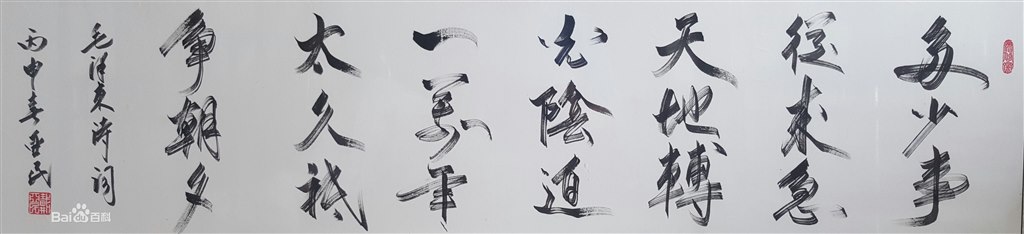 多少事
從來急
天地轉
光陰迫
一萬年
太久祗
爭朝夕
毛澤東詩詞
丙申春
Bai百科